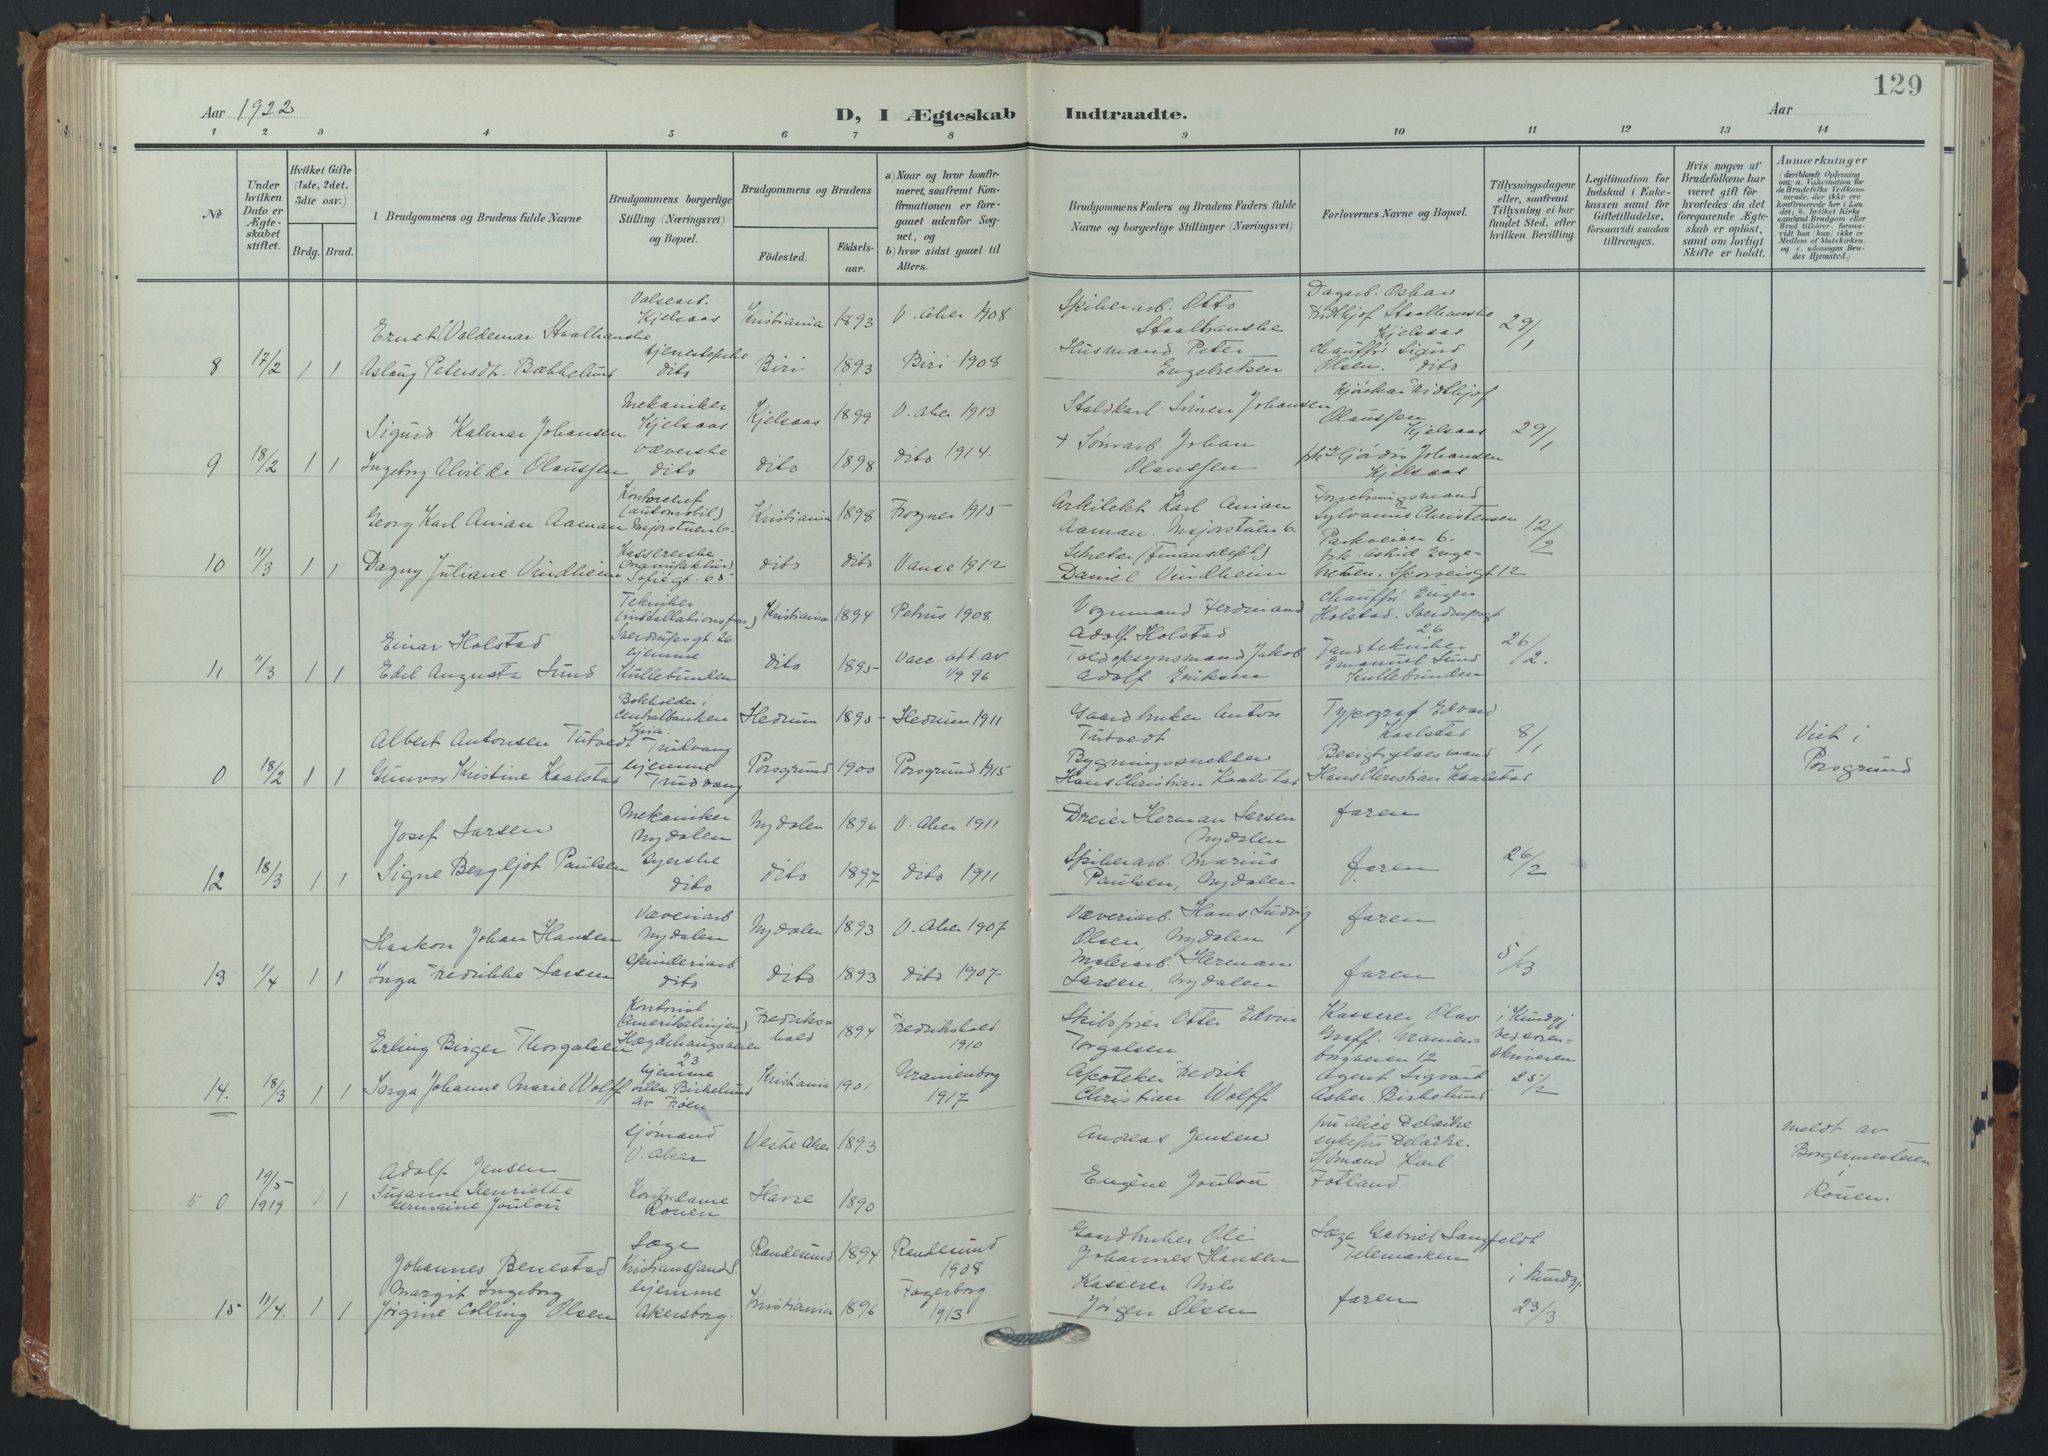 129
Aar 1922
D, I Ægteskab
Indtraadte.
Aar
1 2 3 4 5 6 7 8 9 10 11 12 13 14
No
Under hvilken Dato er Ægteskabet stiftet.
Hvilket Gifte (1ste, 2det, 3die osv.)
Brdg. Brud.
1 Brudgommens og Brudens fulde Navne
Brudgommens borgerlige Stilling (Næringsvei) og Bopæl.
Brudgommens og Brudens
Födested.
Födsels-aar.
a) Naar og hvor konfirmeret, saafremt Konfirmationen er foregaaet udenfor Sognet, og
b) hvor sidst gaaet til Alters.
Brudgommens Faders og Brudens Faders fulde Navne og borgerlige Stillinger (Næringsvei)
Forlovernes Navne og Bopæl.
Tillysningsdagene eller, saafremt Tillysning ei har fundet Sted, efter hvilken Bevilling.
Legitimation for Indskud i Enkekassen samt for Giftetilladelse, forsaavidt saadan tiltrænges.
Hvis nogen af Brudefolkene har været gift før hvorledes da det foregaaende Ægteskab er oplöst, samt om lovligt Skifte er holdt.
Anmærkninger
Valsearb. Kjelsaas Kristiania 1893 V. Aker 1908 Spikerarb. Otto Staalhanske Dagarb. Oskar Fridthjof Staalhanske Kjelsaas 29/1
Ernst Valdemar Staalhanske
8 17/2 1 1 Aslaug Petersdt. Bækkelund tjenestepike dito Biri 1893 Biri 1908 Husmand Peter Engebretsen Chauffør Sigurd Olsen. dito
Sigurd Kalmar Johansen Mekaniker Kjelsaas Kjelsaas 1899 V. Aker 1913 Staldkarl Simen Johansen Kjørekar Fridthjof Olaussen Kjelsaas 29/1
9 18/2 1 1 Ingeborg Alvilde Olaussen væverske dito dito 1898 dito 1914. + Johan Olaussen frk. Hjørdis Johansen Kjelsaas
Georg Karl Amian Aaman (automobil) Majorstuen 6. Kristiania 1898 Frogner 1915 Arkitekt Karl Amian Aaman. Majorstuen 6. Forretningsmand Sylvanus Christensen Parkveien 6. 12/2
10 11/3 1 1 Dagny Juliane Vindheim Kassererske Sofiegt. 65 dito dito Vanse 1912 Sekretær (Finansdept) Daniel Vindheim frk. Astrid Engebretsen, Sporveisgt 12
Einar Holstad Tekniker (installationsforr.) Sverdrupsgt 26 Kristiania 1894 Petrus 1908 Vognmand Ferdinand Adolf Holstad Chauffør Eugen Holstad. Sverdrupsgt 26 26/2.
11 11/3 1 1 Edel Augusta Lund hjemme Kullebunden dito 1895 Vacc. att. av 1/9 96 Toldopsynsmand Jakob Adolf Eriksen Tandtekniker Emanuel Lund Kullebunden
Albert Antonsen Tutvedt Bokholder i Centralbanken Kria. Trudvang Hedrum 1895 Hedrum 1911 Gaardbruker Anton Tutvedt Typograf Edvard Kaalstad 8/1 Viet i Porsgrund
0 18/2 1 1 Gunvor Kristine Kaalstad hjemme Trudvang Porsgrund 1900 Porsgrund 1915 Bygningssnekker Hans Christian Kaalstad Besigtigelsesmand Hans Christian Kaalstad
Josef Larsen Mekaniker Nydalen Nydalen 1896 V. Aker 1911 Dreier Herman Larsen Nydalen faren
12 18/3 1 1 Signe Bergljot Paulsen syerske dito dito 1897 dito 1911 Spikerarb. Marius Paulsen, Nydalen faren 26/2
Haakon Johan Hansen Væveriarb Nydalen Nydalen 1893 V. Aker 1907 Væveriarb. Hans Ludvig Olsen, Nydalen faren
13 1/4 1 1 Inga Fredrikke Larsen spinderiarb dito dito 1893 dito 1907 Malerarb. Herman Larsen, Nydalen faren 5/3
Erling Birger Thorgalsen Kontorist (Amerikalinjen) Hægdehaugsveien 23 Fredrikshald 1894 Fredrikshald 1910 Skibsfører Otter Edvin Torgalsen Kasserer Olav Graff. Uranienborgveien 12 i Kundgj ved sorenskriveren
14. 18/3 1 1 Johanne Marie Wolff hjemme villa Birkelund av Frøen Kristiania 1901 Uranienborg 1917 Apoteker Fredrik Christian Wolff Agent Sigvart Asker Birkelund 25/2
Adolf Jensen sjømand V. Aker Vestre Aker 1893 Andreas Jensen fru Alice Delacke enkefru Delacke. meldt av Borgermesteren i Rouen.
0 19/5 1919 1 1 Susanne Henriette Germaine Joulou Kontordame Rouen Havre 1890 Eugène Joulou Sjømand Karl Fotland
Johannes Benestad Læge Kristianssand S. Randesund 1894 Randesund 1908 Gaardbruker Ole Johannes Hansen Læge Gabriel Langfeldt Telemarken i Kundgj.
15 11/4. 1 1 Margit Ingeborg Jørgine Colling Olsen hjemme Akersborg. Kristiania 1896 Fagerborg 1913 Kasserer Nils Jørgen Olsen faren 23/3.